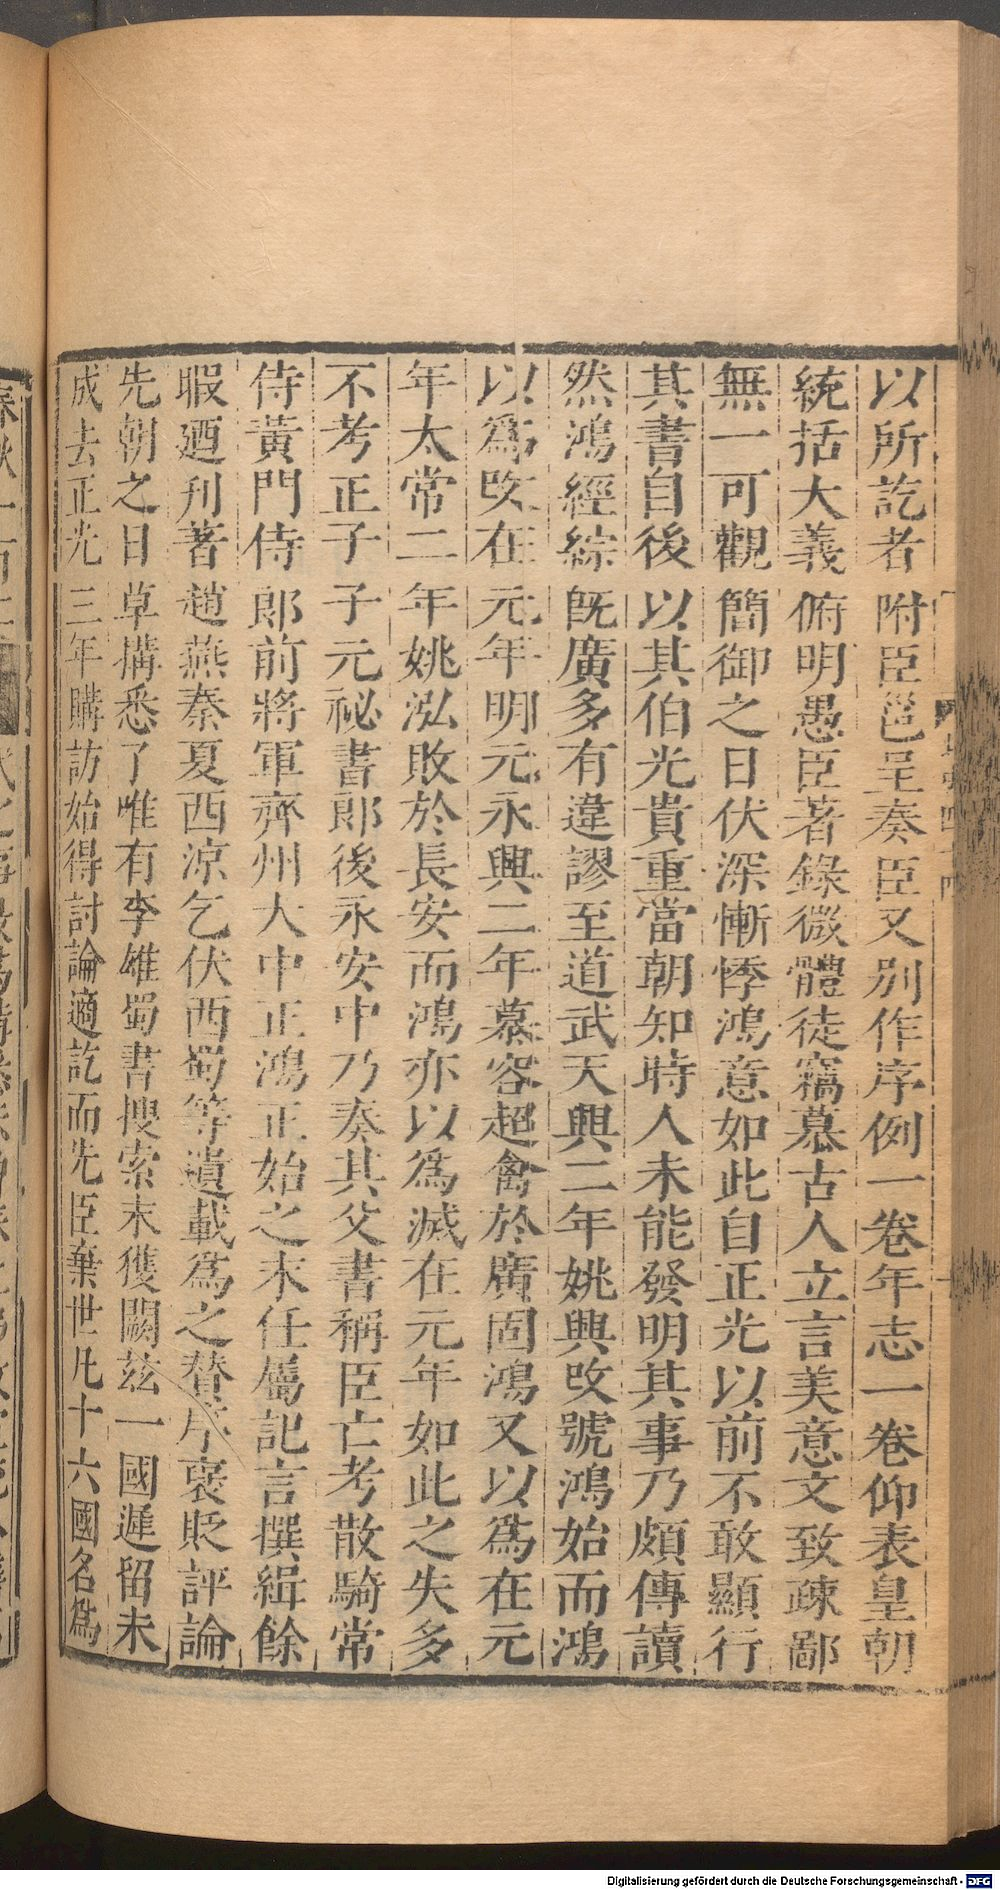 以所訖者附臣邕呈奏臣又別作序例一卷年志一卷仰表皇朝
統括大義俯明愚臣著錄微體徒竊慕古人立言美意文致疎鄙
無一可觀簡御之日伏深慚悸鴻意如此自正光以前不敢顯行
其書自後以其伯光貴重當朝知時人未能發明其事乃頗傳讀
然鴻經綜既廣多有違謬至道武天興二年姚興改號鴻始而鴻
以爲改在元年明元永興二年慕容超禽於廣固鴻又以爲在元
年太常二年姚泓敗於長安而鴻亦以爲滅在元年如此之失多
不考正子子元祕書郎後永安中乃奏其父書稱臣亡考散騎常
侍黃門侍郎前將軍齊州大中正鴻正始之末任屬記言撰緝餘
暇廼刊著趙燕秦夏西涼乞伏西蜀等遺載爲之贊序褒貶評論
先朝之日草搆悉了唯有李雄蜀書搜索未獲闕玆一國遲留未
成去正光三年購訪始得討論適訖而先臣棄世凡十六國名爲
Digitalisierung gefördert durch die Deutsche Forschungsgemeinschaft - DFG